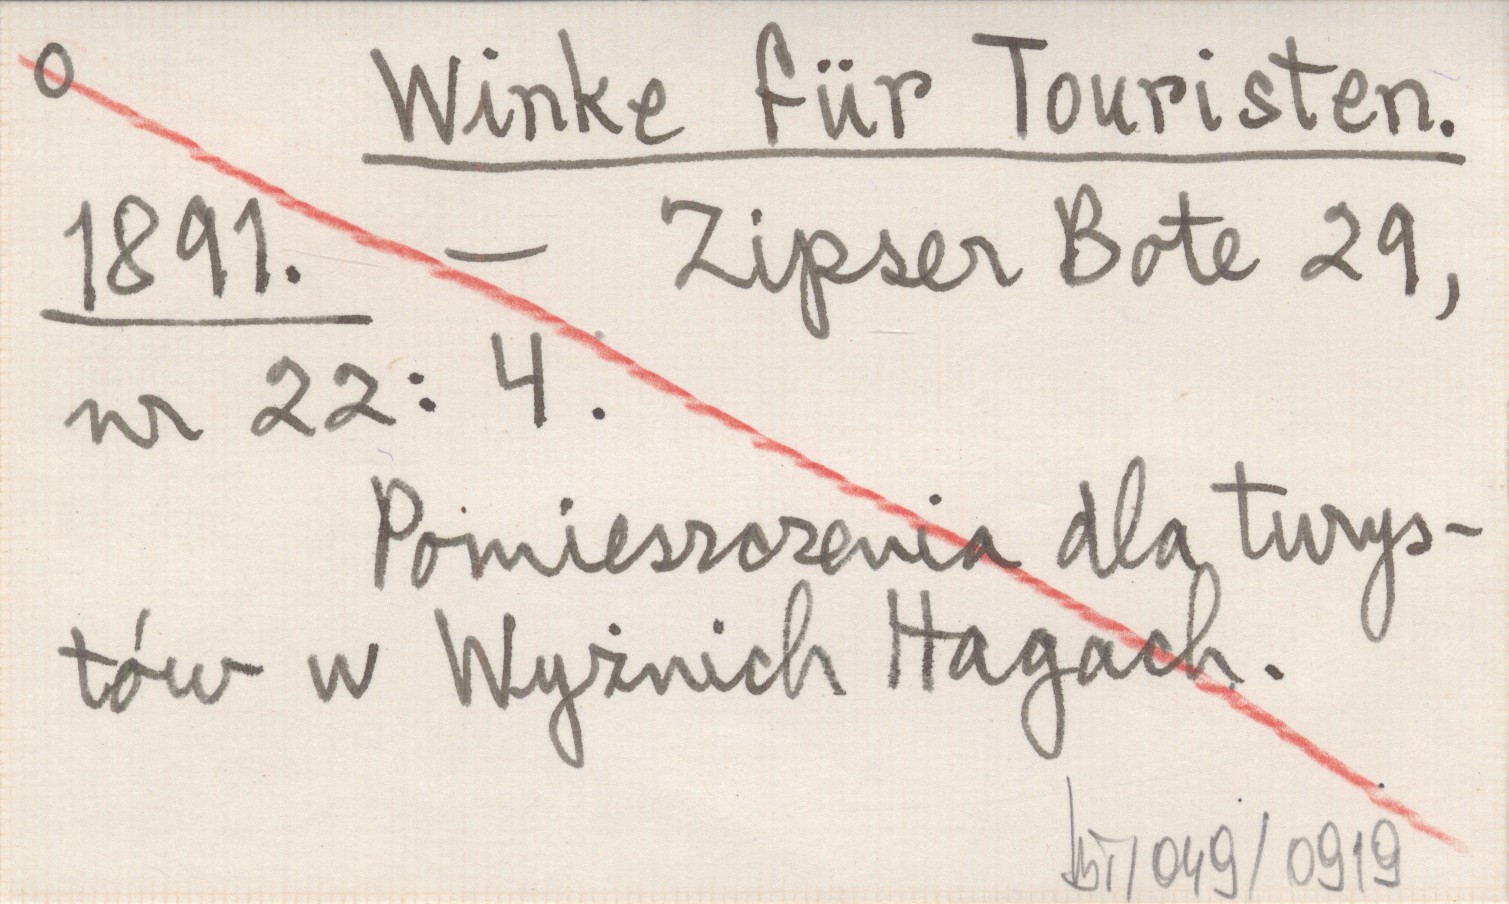 o Winke für Touristen.
1891. — Zipser Bote 29,
nr 22: 4.
Pomieszczenia dla turys-
tów w Wyżnich Hagach.
/049/0919